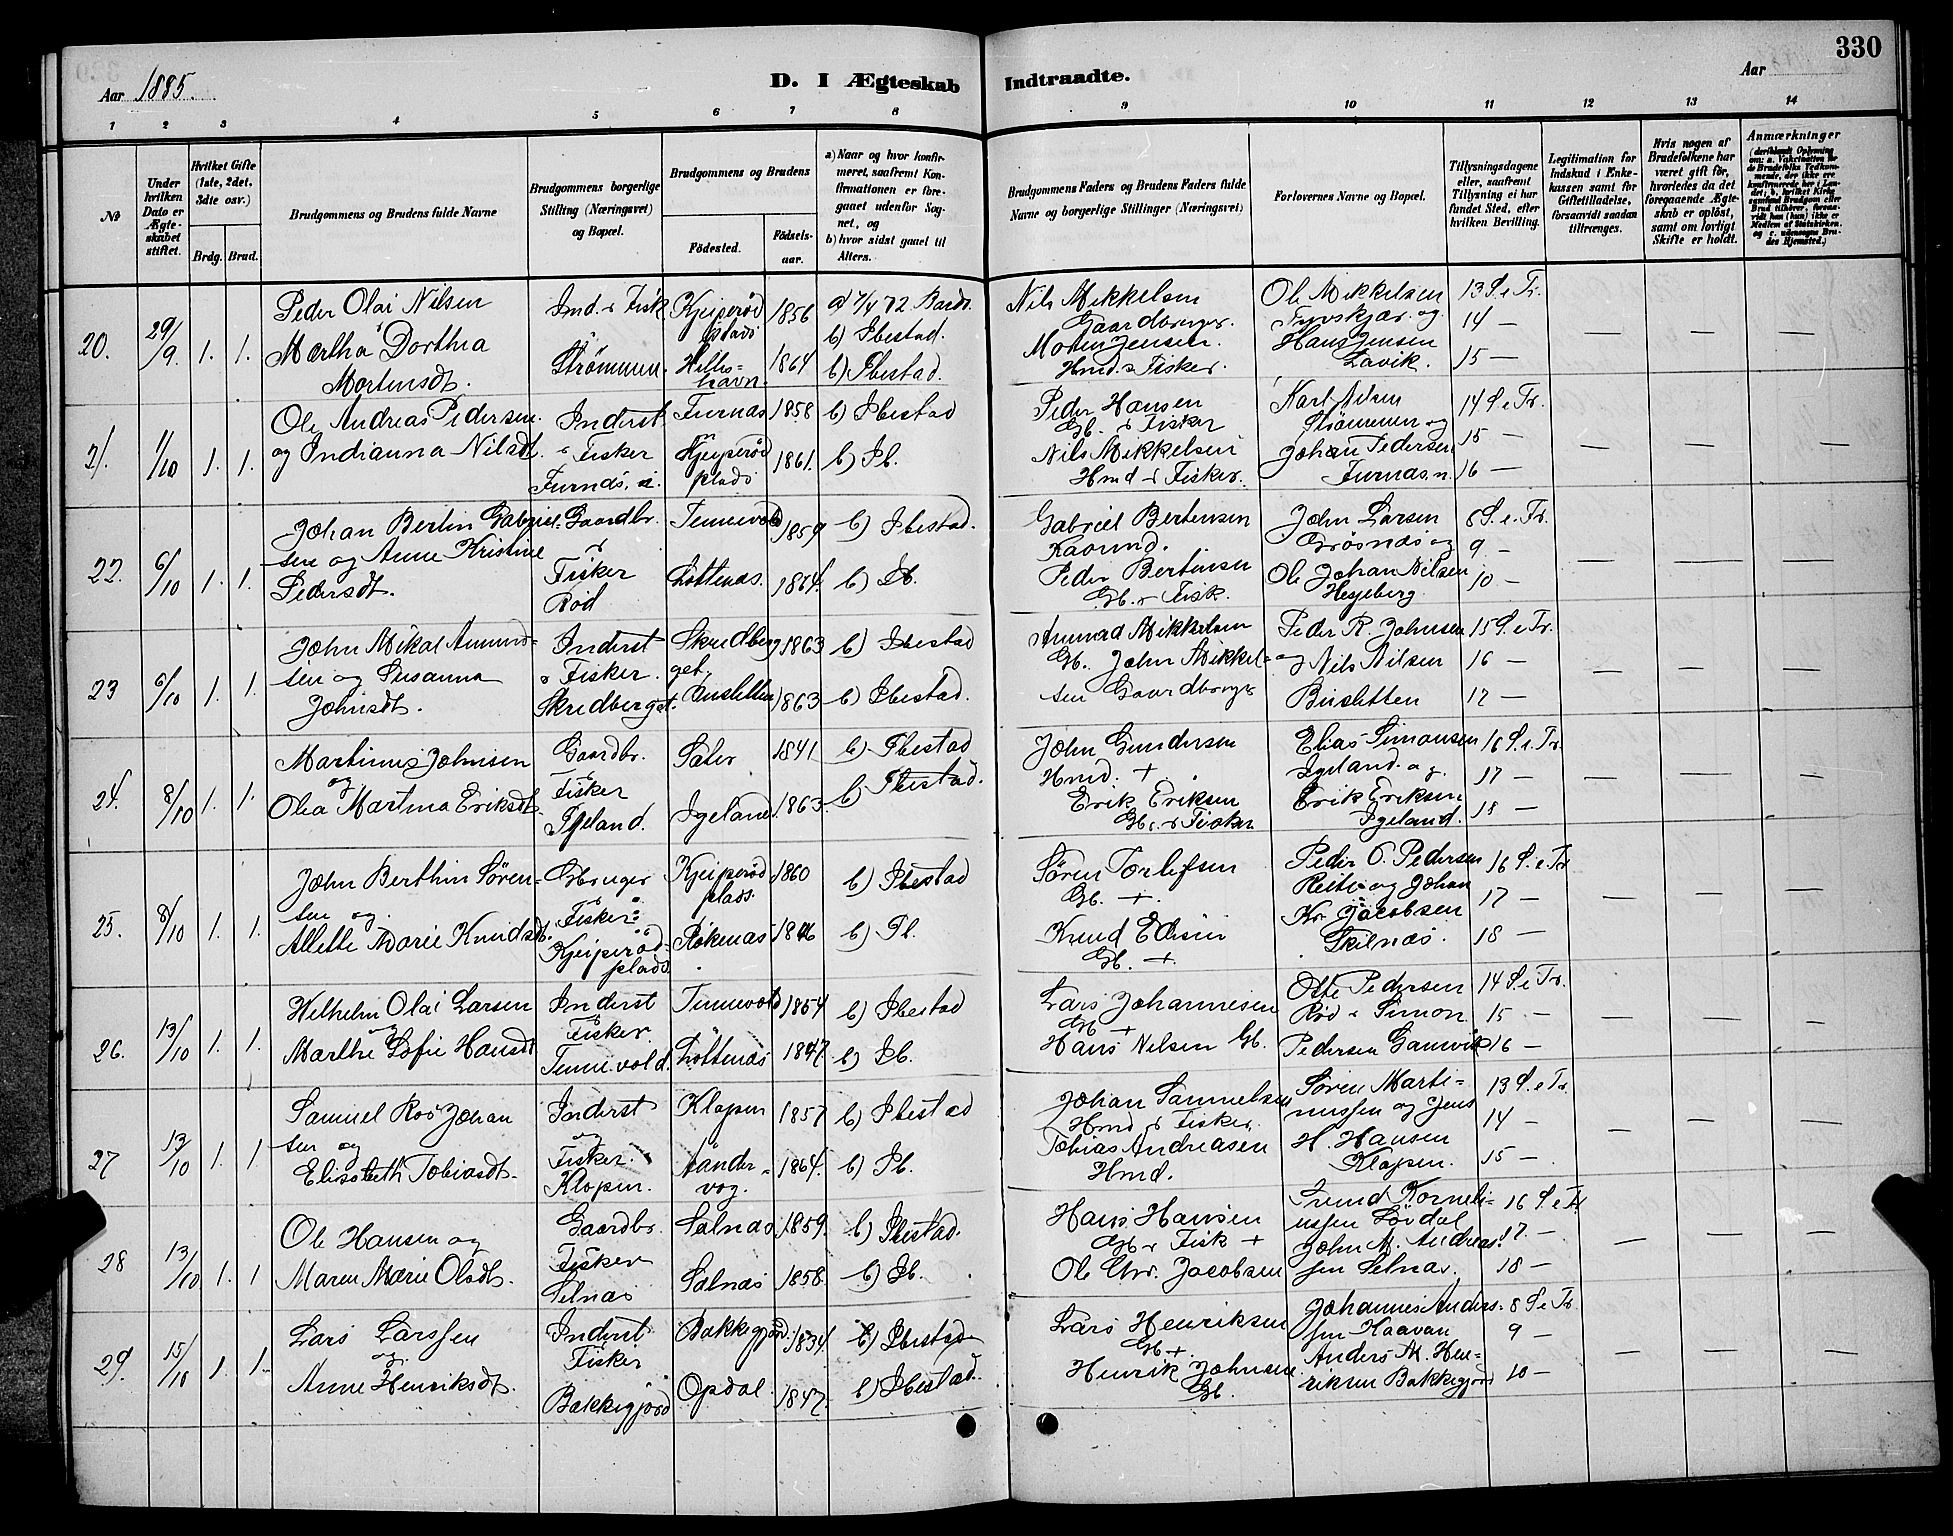 330
Aar 1885.
D. I Ægteskab Indtraadte.
Aar
1 2 3 4 5 6 7 8 9 10 11 12 13 14
№
Under hvilken Dato er Ægteskabet stiftet.
Hvilket Gifte (1ste, 2det, 3dte osv.)
Brdg. Brud.
Brudgommens og Brudens fulde Navne
Brudgommens borgerlige Stilling (Næringsvei) og Bopæl.
Brudgommens og Brudens
Födested. Födsels-aar.
a) Naar og hvor konfirmeret, saafremt Konfirmationen er foregaaet udenfor Sognet, og
b) hvor sidst gaaet til Alters.
Brudgommens Faders og Brudens Faders fulde Navne og borgerlige Stillinger (Næringsvei)
Forlovernes Navne og Bopæl.
Tillysningsdagene eller, saafremt Tillysning ei har fundet Sted, efter hvilken Bevilling.
Legitimation for Indskud i Enkekassen samt for Giftetilladelse, forsaavidt saadan tiltrænges.
Hvis nogen af Brudefolkene har været gift för, hvorledes da det foregaaende Ægteskab er oplöst, samt om lovligt Skifte er holdt.
Anmærkninger
20. 29/9 1. 1. Peder Olai Nilsen Ind. & Fisk. Kjeiperöd plads 1856 a) 7/4 72 Bardo. b) Ibestad. Nils Mikkelsen Gaardbruger. Ole Mikkelsen og 13 S. e Tr.
Martha Dorthea Mortensdt. Strømmen. Hellis-havn. 1864 b) Ibestad. Morten Jensen. Hmd. & Fisker. Hans Jensen Lavik. 14 — 15 — — — —
21. 1/10 1. 1. Ole Andreas Pedersen Inderst Furnæs 1858 b) Ibestad Peder Hansen Gb. & Fisker Karl Nilsen Strömmen og 14 S. e Tr.
og Indianna Nilsdt. & Fisker Furnæs. Kjeiperöd plads 1861. b) Ib. Nils Mikkelsen Hmd & Fisker. Johan Pedersen Furnæs. 15 — 16 — — — —
22. 6/10 1. 1. Johan Bertin Gabriel- Gaardbr. Tennevold 1859 b) Ibestad. Gabriel Bertensen John Larsen og 8 S. e. Tr.
sen og Anne Kristine Pedersdt. & Fisker Röd Löttenæs. 1864. b) Ib. Peder Bertensen Gb. & Fisk. Ole Johan Nilsen 9 — 10 — — — —
23 6/10 1. 1. John Mikal Amund- Inderst Skredberget, 1863 b) Ibestad Amund Mikkelsen Gb. Peder R. Johnsen 15 S. e Tr.
sen og Susanna Johnsdt. & Fisker. Skredberget. 1863 b) Ibestad. John Mikkelsen Gaardbruger og Nils Nilsen 16 — 17 — — — —
24. 8/10 1. 1. Martinus Johnsen Gaardbr. Sæter 1841 b) Ibestad John Gundersen Hmd. + Elias Simonsen Igeland. og 16 S. e. Tr.
og Olea Martina Eriksdt. Fisker Igeland. Igeland. 1863. b) Ibestad. Erik Eriksen Gb. & Fisker Erik Eriksen Igeland. 17 — 18 — — — —
25. 8/10 1. 1. John Berthin Sören- Gbruger Kjeiperöd plads. 1860 b) Ibestad Sören Torlefsen Gb. +. Peder O. Pedersen 16 S. e Tr
sen og Allette Marie Knudsdt. Fisker: Kjeiperöd-plads b) Ib. Knud Gb. + og Johan Kr. Jacobsen 17 — 18 — — — —
26. 13/10 1. 1. Wilhelm Olai Larsen Inderst Tennevold 1854 b) Ibestad Lars Johannesen Gb + Otte Pedersen Röd & Simon 14 S. e Tr.
og Marthe Sofie Hansdt Fisker. Tennevold. Löttenæs 1847 b) Ib. Hans Nilsen Gb. Pedersen Gamvik 15 — 16 — — — —
27 13/10 1. 1. Samuel Roö Johan Inderst Klapen 1857 b) Ibestad Johan Samuelsen Hmd & Fisker. Sören Marti- 13 S. e Tr
sen og Elisabeth Tobiasdt. og Fisker. Klapen. 1864. b) Ib. Tobias Andreasen Hmd. nussen og Jens H. Hansen Klapen. 14 — 15 — — — —
28 13/10 1. 1 Ole Hansen og Gaardbr. Salnæs 1859. b) Ibestad. Hans Hansen Gb & Fisk + Korneli- 16 S. e Tr
Maren Marie Olsdt. Fisker Selnæs Salnæs 1858. b) Ib. Ole Chr. Jacobsen ussen Lövdal John M. Andreassen Selnæs. 17 — 18 — — — —
29. 15/10 1. 1. Lars Larssen Inderst Bakkegjord. 1834 b) Ibestad Lars Henriksen Gb +. Johannes Anders- 8 S. e Tr.
og Anne Henriksdt. Fisker Bakkegjord Opdal. 1847. b) Ibestad. Henrik Johnsen Gb. sen Haavan Anders M. Hen-riksen Bakkegjord 9 — 10 — — — —